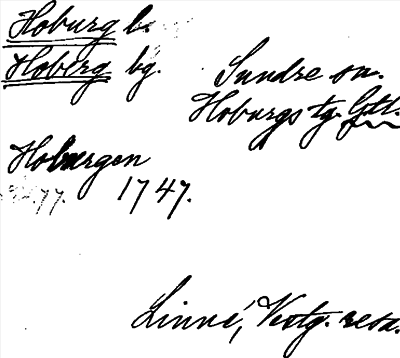 Hoburg b.
Hoberg bg.
Sundre sn.
Hoburgs tg. Gtl.
Hobergen
77.
1747.
Linné, Vestg. resa.